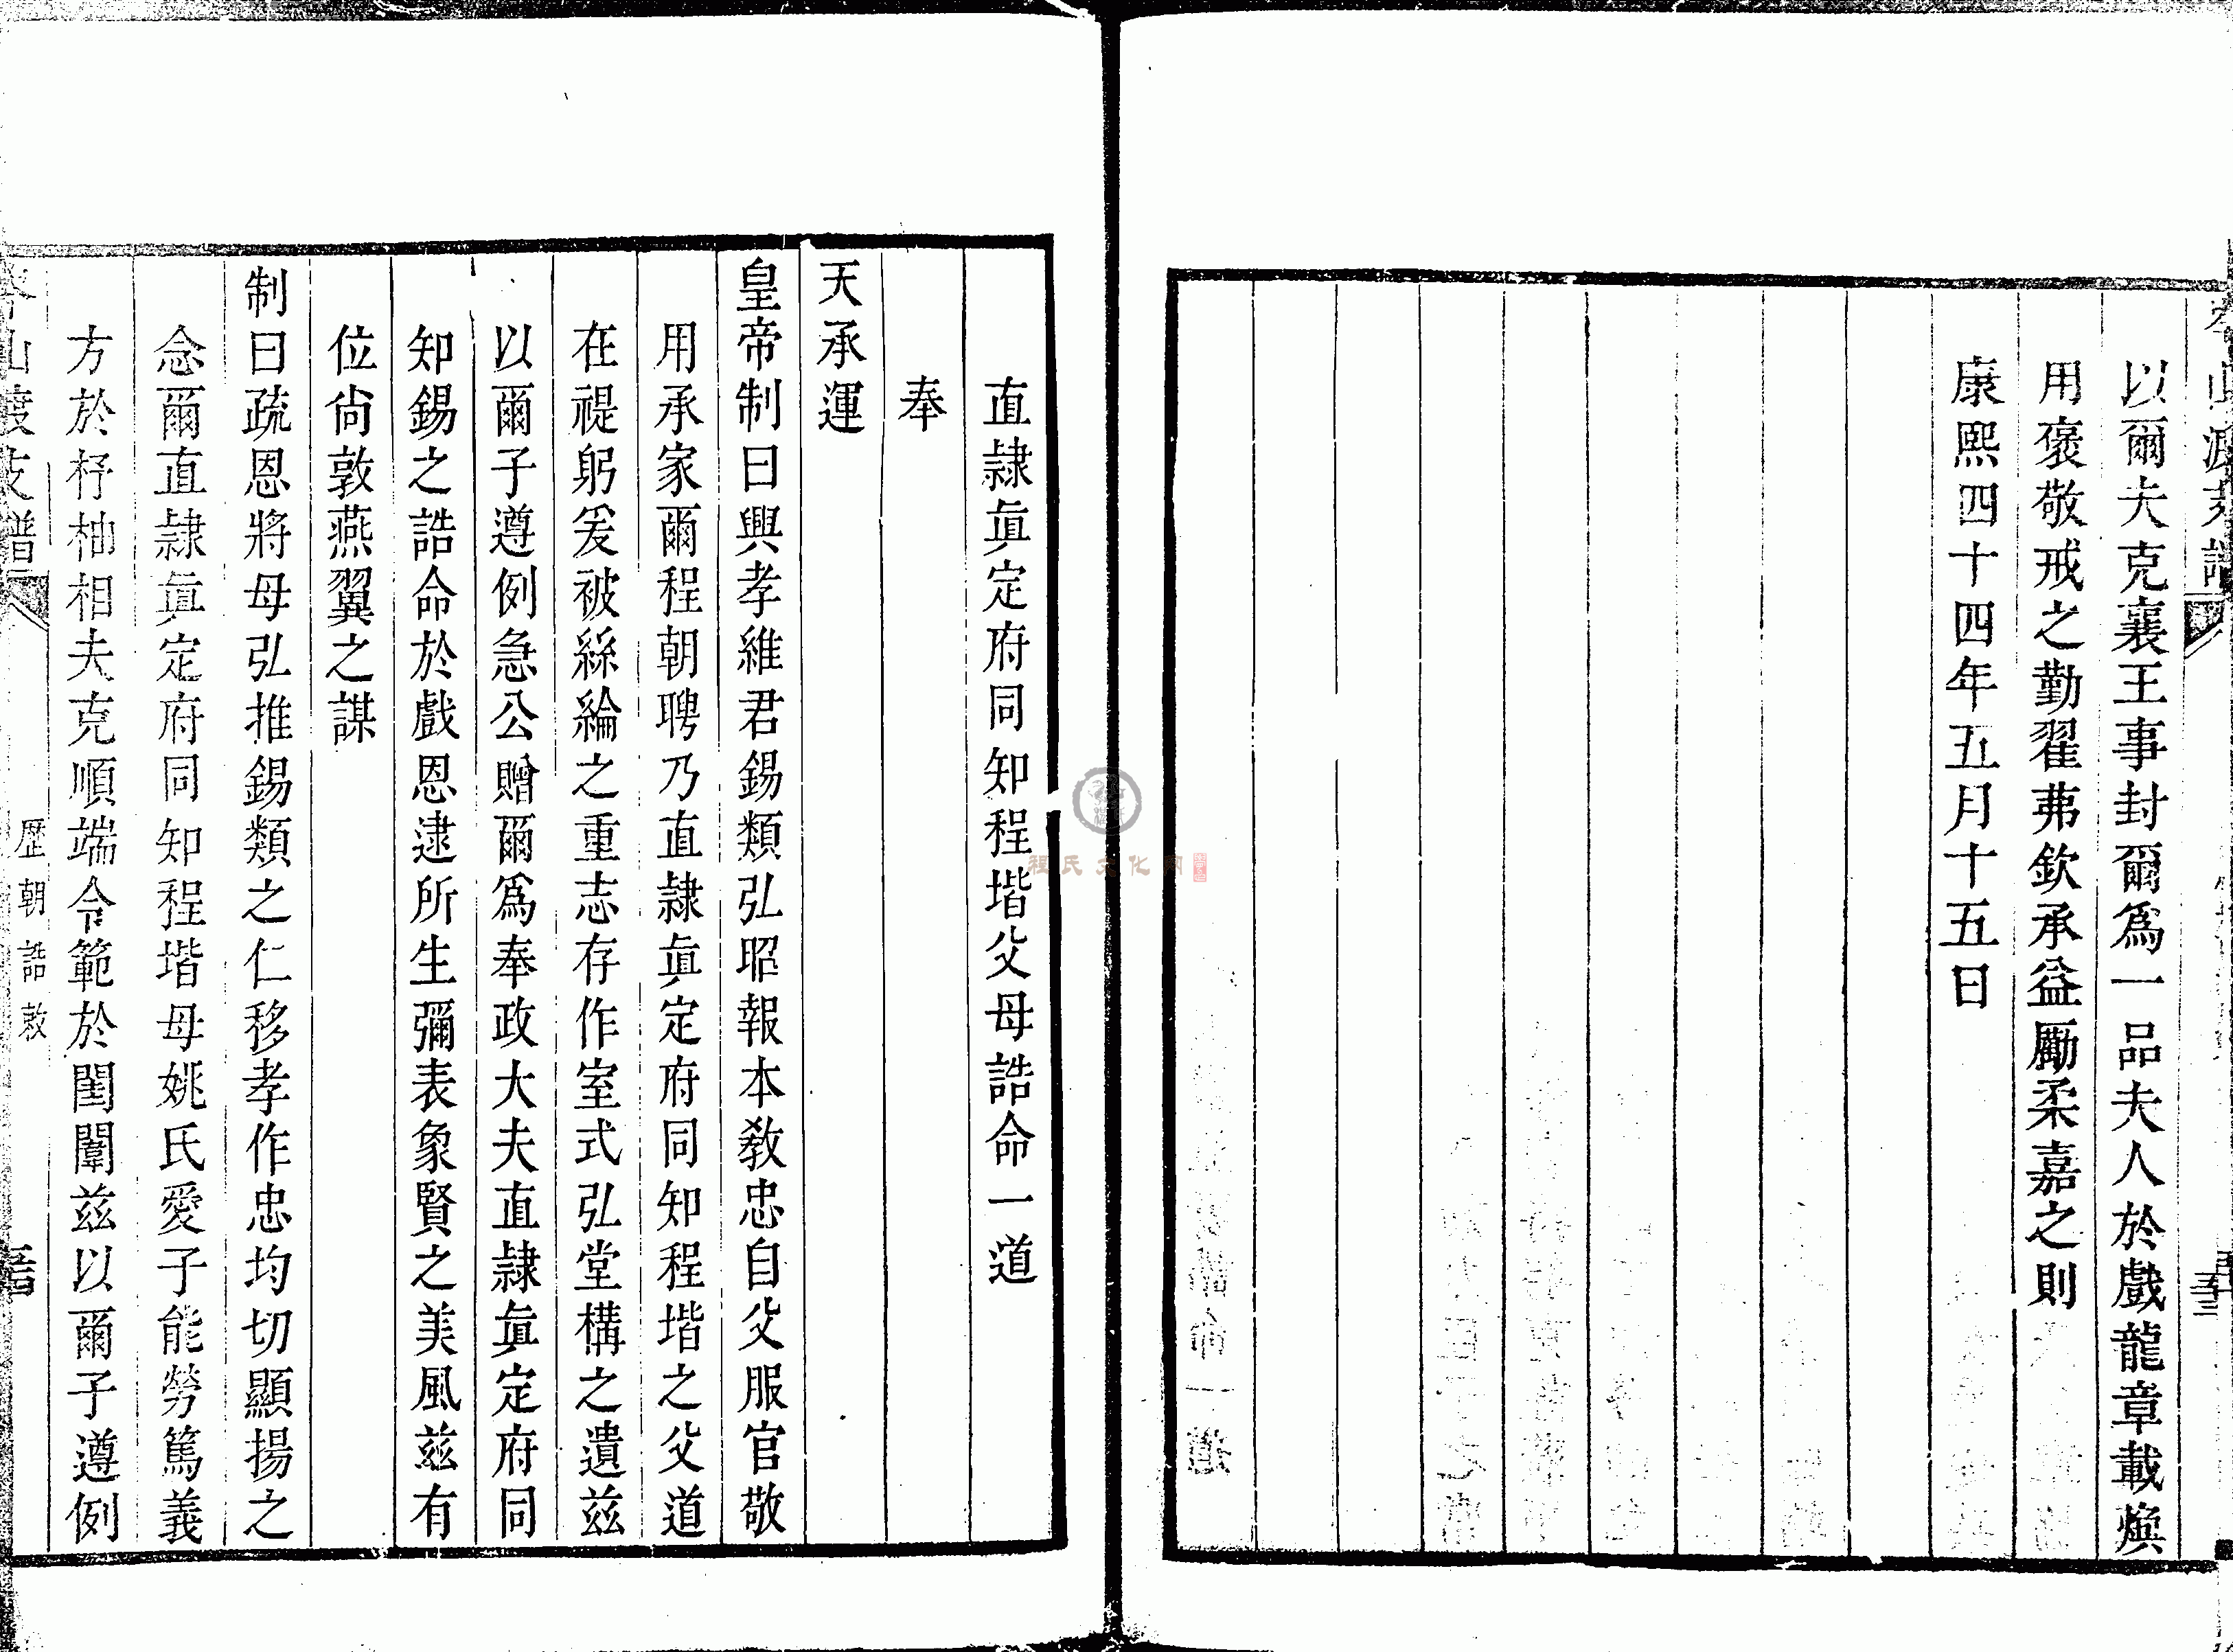 以爾夫克襄王事封爾爲一品夫人於戲龍章載煥
用褒敬戒之勤翟茀欽承益勵柔嘉之則
康熙四十四年五月十五日
直隸眞定府同知程堦父母誥命一道
奉
天承運
皇帝制曰興孝維君錫類弘昭報本敎忠自父服官敬
用承家爾程朝聘乃直隸眞定府同知程堦之父道
在禔躬爰被絲綸之重志存作室式弘堂構之遺茲
以爾子遵例急公贈爾爲奉政大夫直隸眞定府同
知錫之誥命於戲恩逮所生彌表象賢之美風茲有
位尙敦燕翼之謀
制曰疏恩將母弘推錫類之仁移孝作忠均切顯揚之
念爾直隸眞定府同知程堦母姚氏愛子能勞篤義
方於杼柚相夫克順端令範於閨闈茲以爾子遵例
山渡支譜
歷朝誥敕
程氏文化網